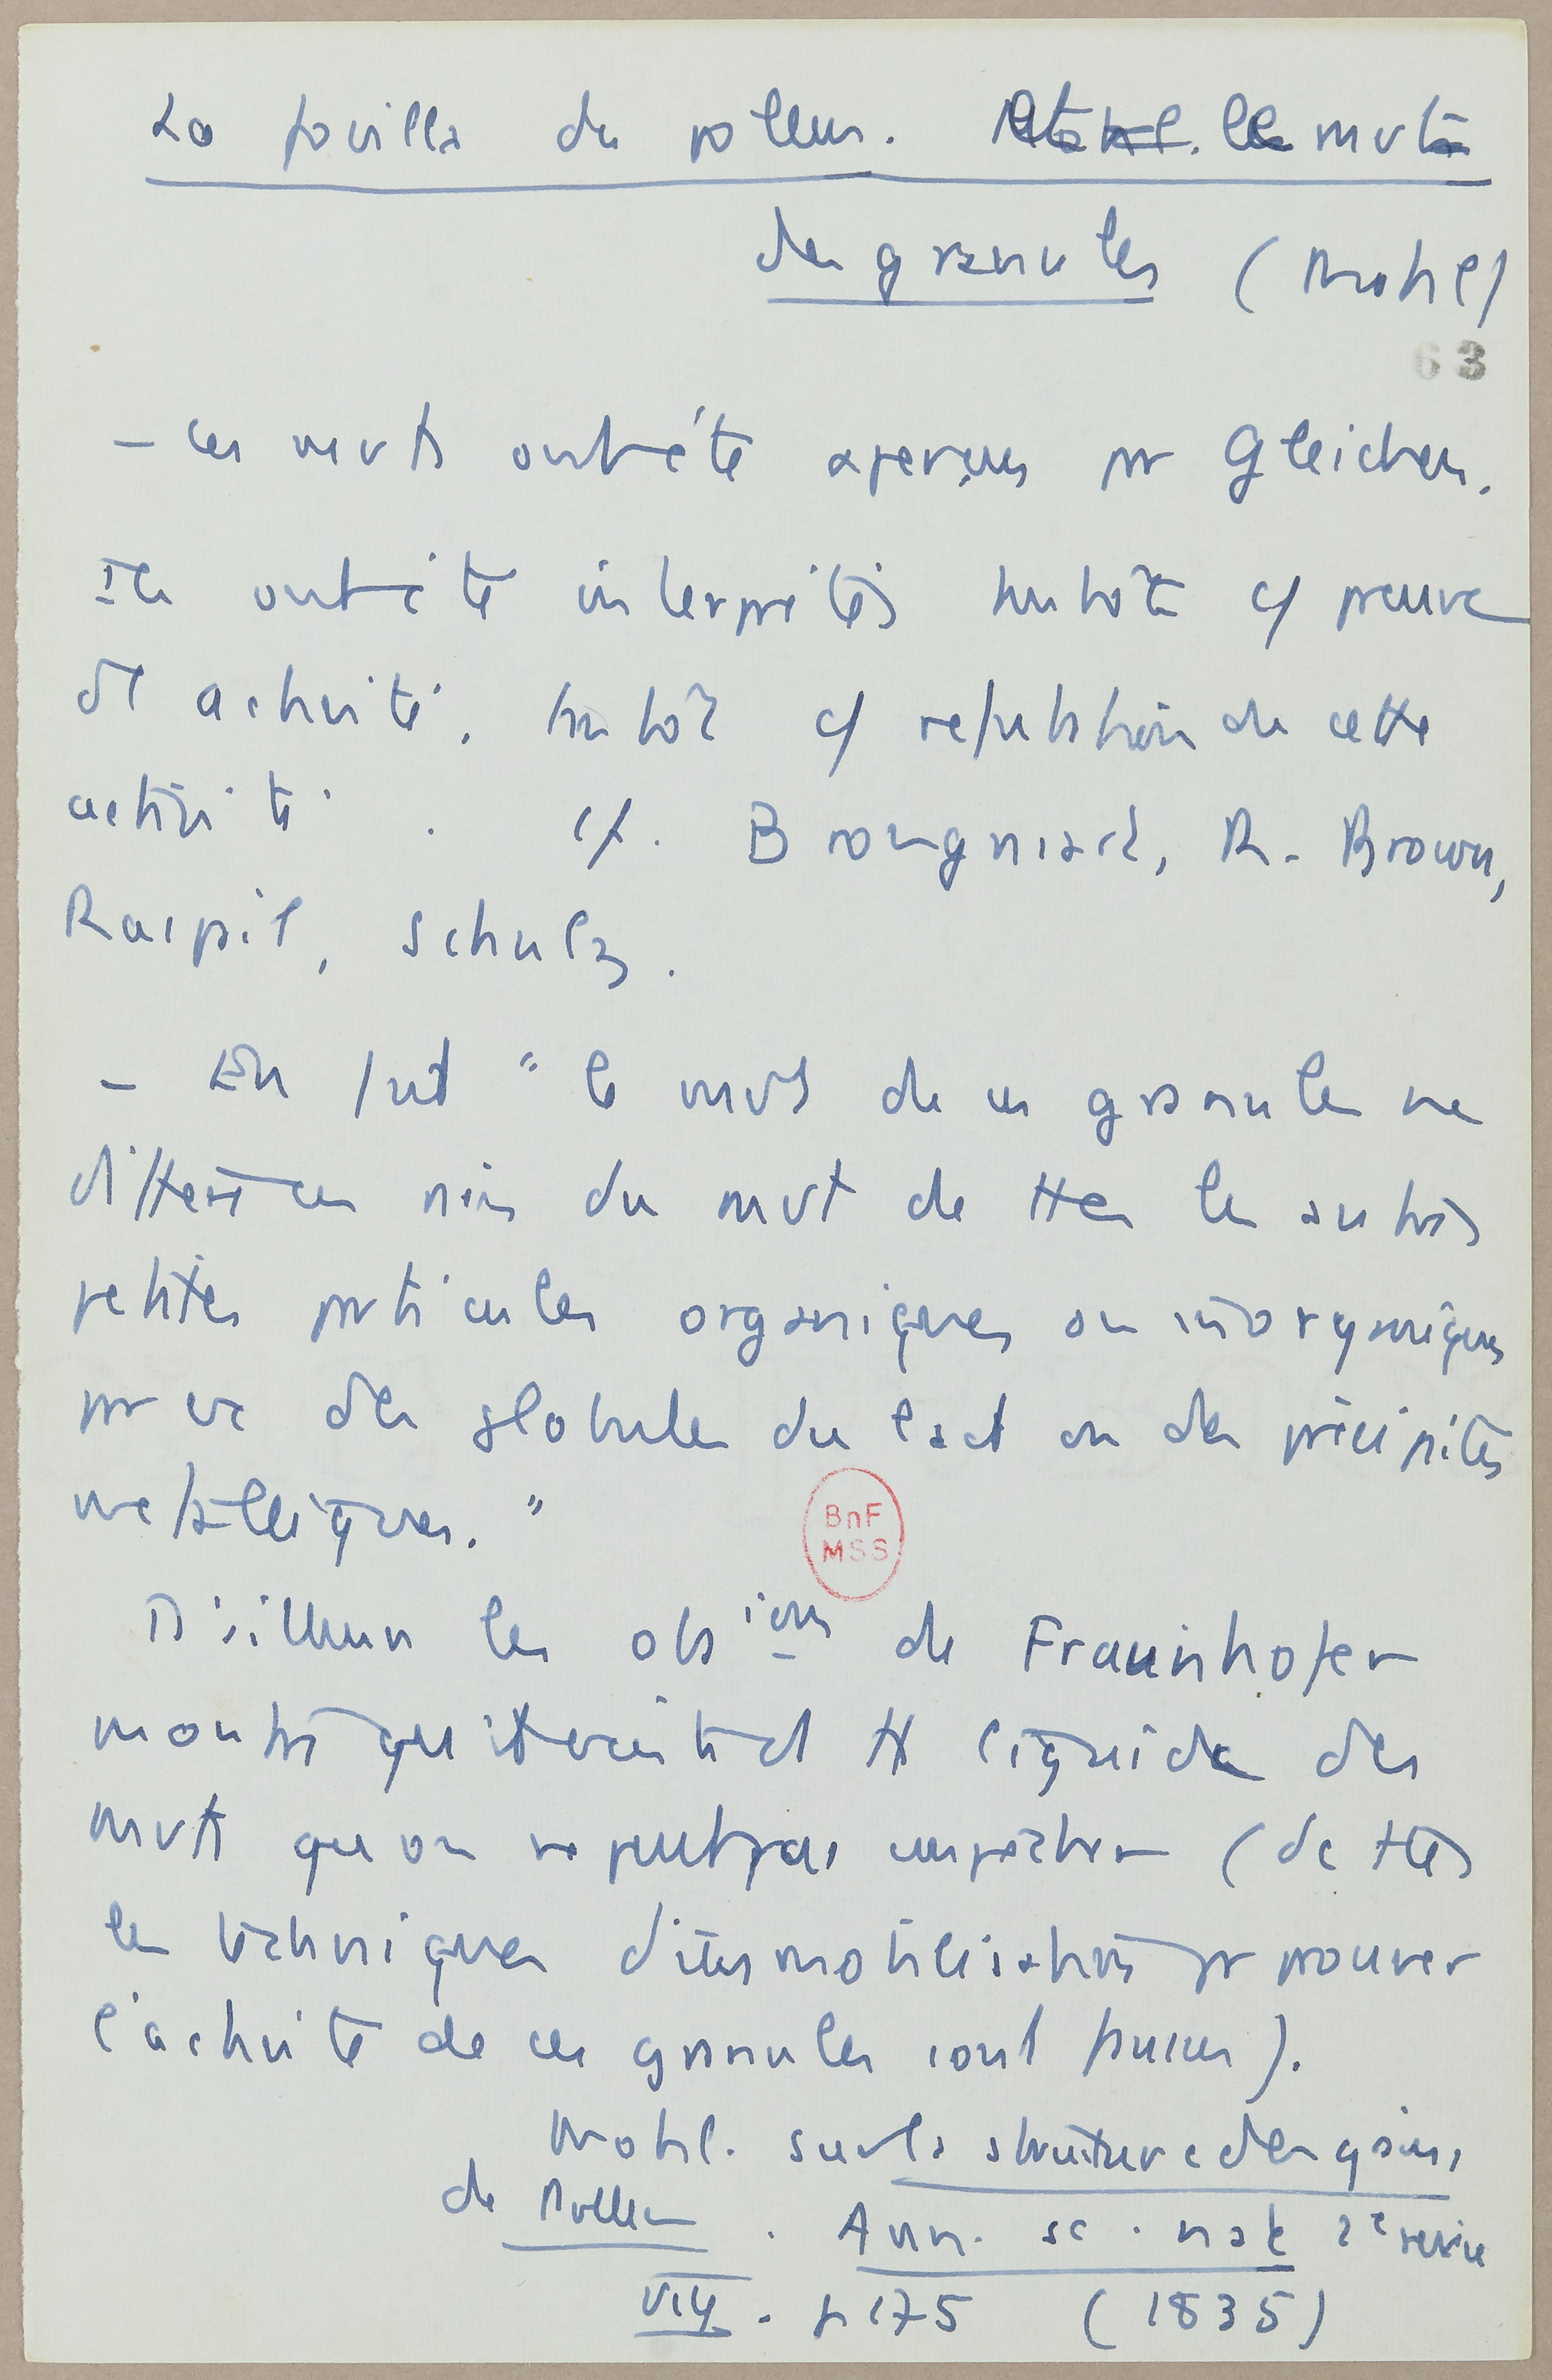 La fovilla du pollen. le mvt
des granules (Mohl)
63
– Ces mvts ont été aperçus pr Gleichen.
Ils ont été interprétés tantôt c/ preuve
de activité, tantôt c/ réfutation de cette
activité. cf. Brongniart, R. Brown,
Raspail, Schulz.
– En fait "le mvt de ces granules ne
diffère en rien du mvt de ttes les autres
petites particules organiques ou inorganiques
pr ex des globules du lait ou des précipités
métalliques."
BnF
MSS
D'ailleurs les obsions de Fraunhofer
montré qu'il existait ds tt liquide des
mvts que on ne peut pas empêcher (de ttes
les techniques d'immobilisation pr prouver
l'activité de ces granules sont fausses).
Mohl. sur la structure des grains
de Pollen. Ann. sc. nat 2e série
p 175 (1835)